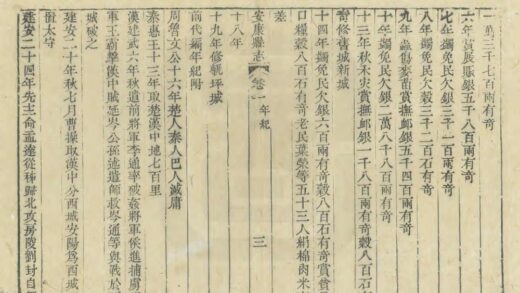 一萬三千七百兩有奇
六年賞賑銀五千八百兩有奇
七年蠲免民欠銀三千一百兩有奇
八年蠲免民欠穀三千二百石有奇
九年蟲傷麥苗賞撫卹銀五千四百兩有奇
十年蠲免民欠銀二萬八千八百兩有奇
十三年秋禾災賞撫卹銀一千八百兩有奇穀八百石
奇修舊城新城
十四年蠲免民欠銀六百兩有奇穀八百石有奇賞貧
口糧穀八百石有奇老民葉榮等五十三人絹棉肉米
差
安康縣志 卷一 年紀 三
十八年
十九年修坪城
前代編年紀附
周魯文公十六年楚人秦人巴人滅庸
秦惠王十三年取楚漢中地七百里
漢建武六年秋遣前將軍李通率破姦將軍侯進捕虜
軍王霸擊漢中賊延岑公孫述遣師救岑通等與戰於
城破之
建安二十年秋七月曹操取漢中分西城安陽爲西城
置太守
建安二十四年先主命孟達從秭歸北攻房陵劉封自